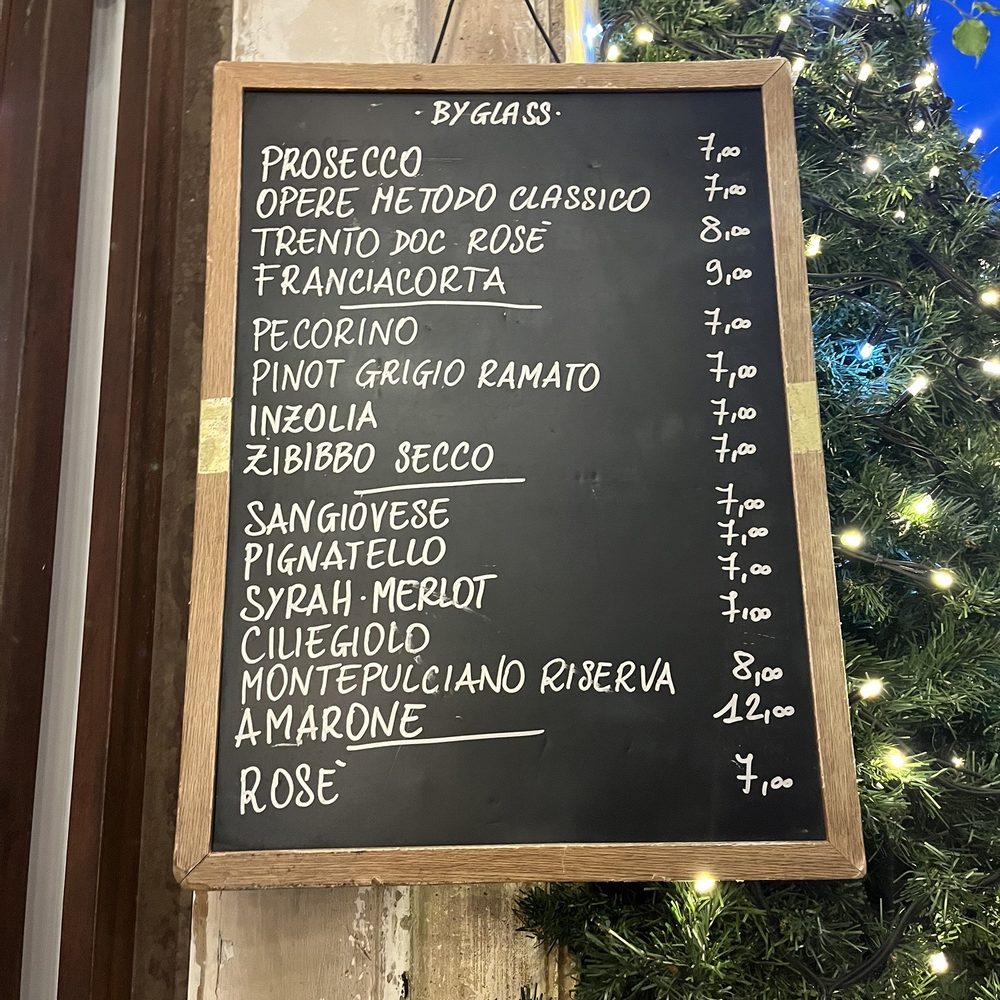 · BY GLASS ·
PROSECCO 7,00
OPERE METODO CLASSICO 7,00
TRENTO DOC ROSÈ 8,00
FRANCIACORTA 9,00
PECORINO 7,00
PINOT GRIGIO RAMATO 7,00
INZOLIA 7,00
ZIBIBBO SECCO 7,00
SANGIOVESE 7,00
PIGNATELLO 7,00
SYRAH · MERLOT 7,00
CILIEGIOLO 7,00
MONTEPULCIANO RISERVA 8,00
AMARONE 12,00
ROSÈ 7,00